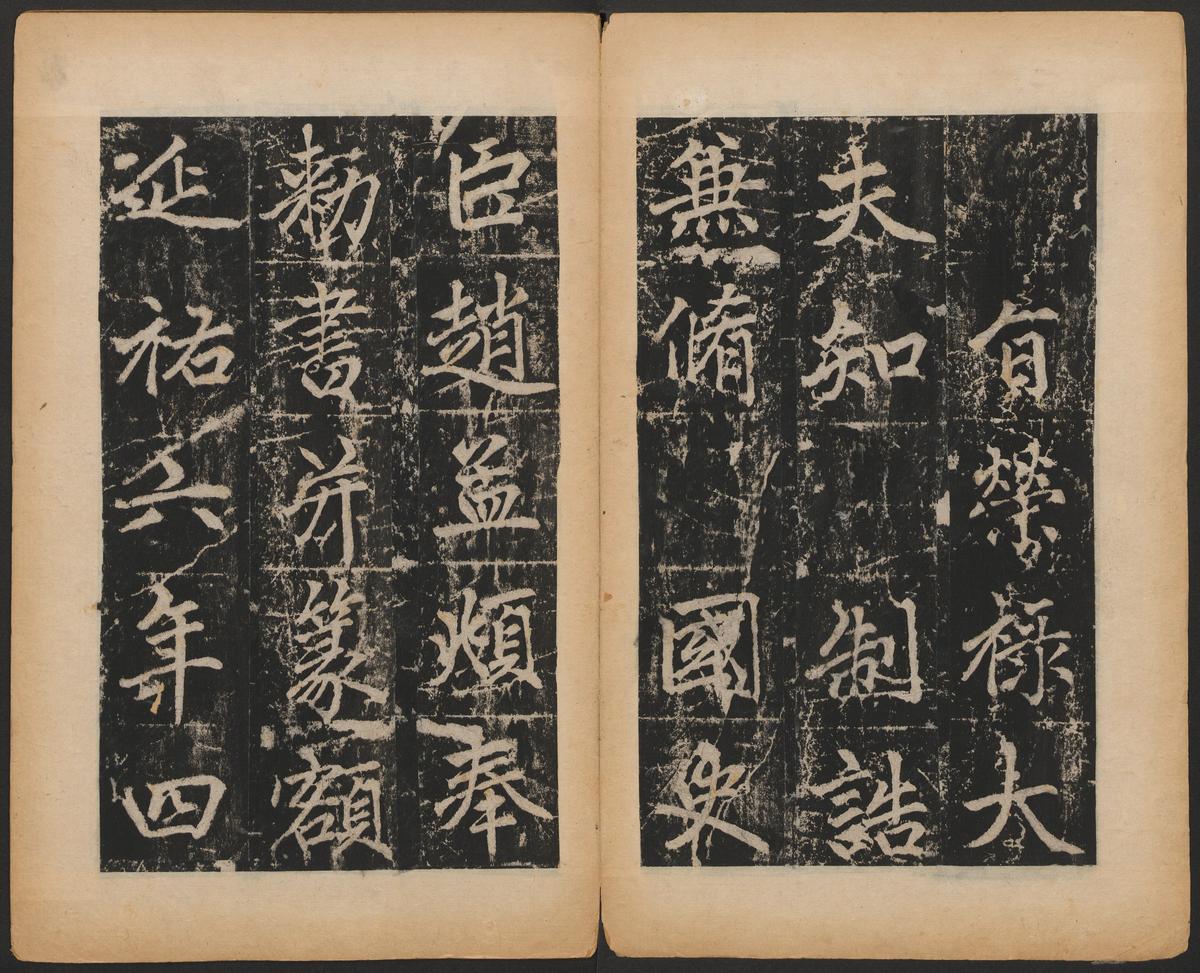 旨榮祿大
夫知制誥
兼脩國史
臣趙孟頫奉
勅書并篆額
延祐六年四